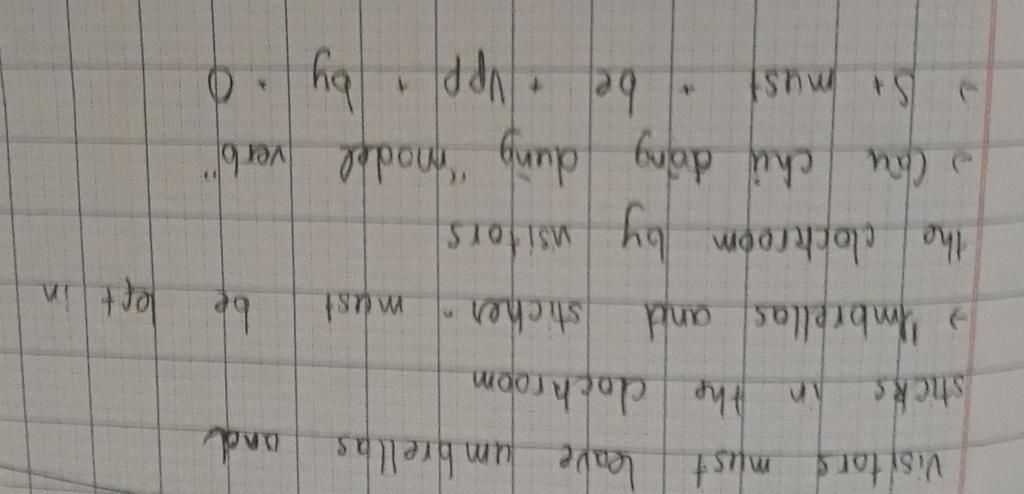 Visitors must leave umbrellas and
sticks in the clockroom
→ Umbrellas and stickes must be left in
the clockroom by visitors
→ Câu chủ động dùng "model verb"
→ S + must + be + Vpp + by + O